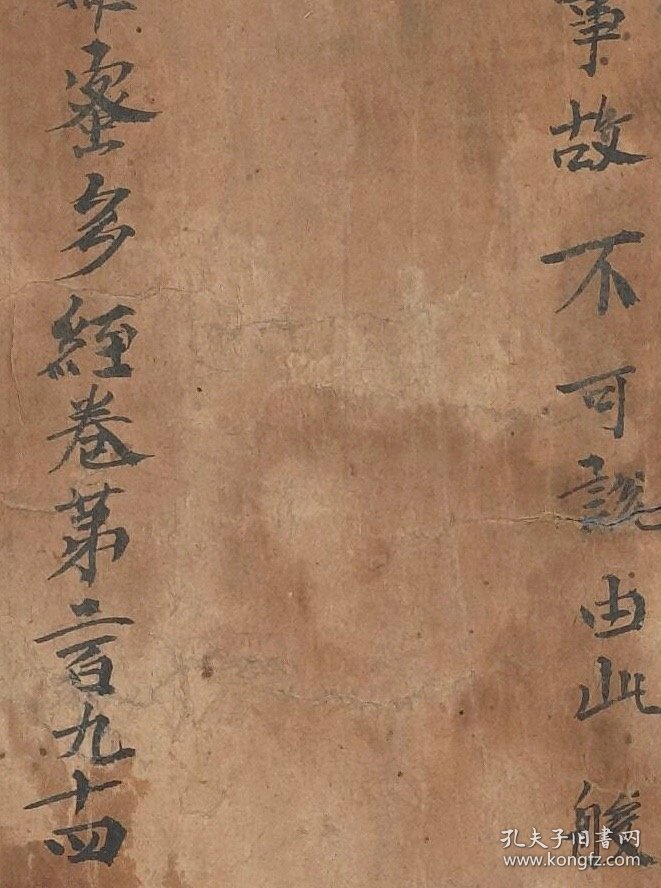 事故不可說由此般
蜜多經卷第二百九十四
孔夫子旧書网
www.kongfz.com